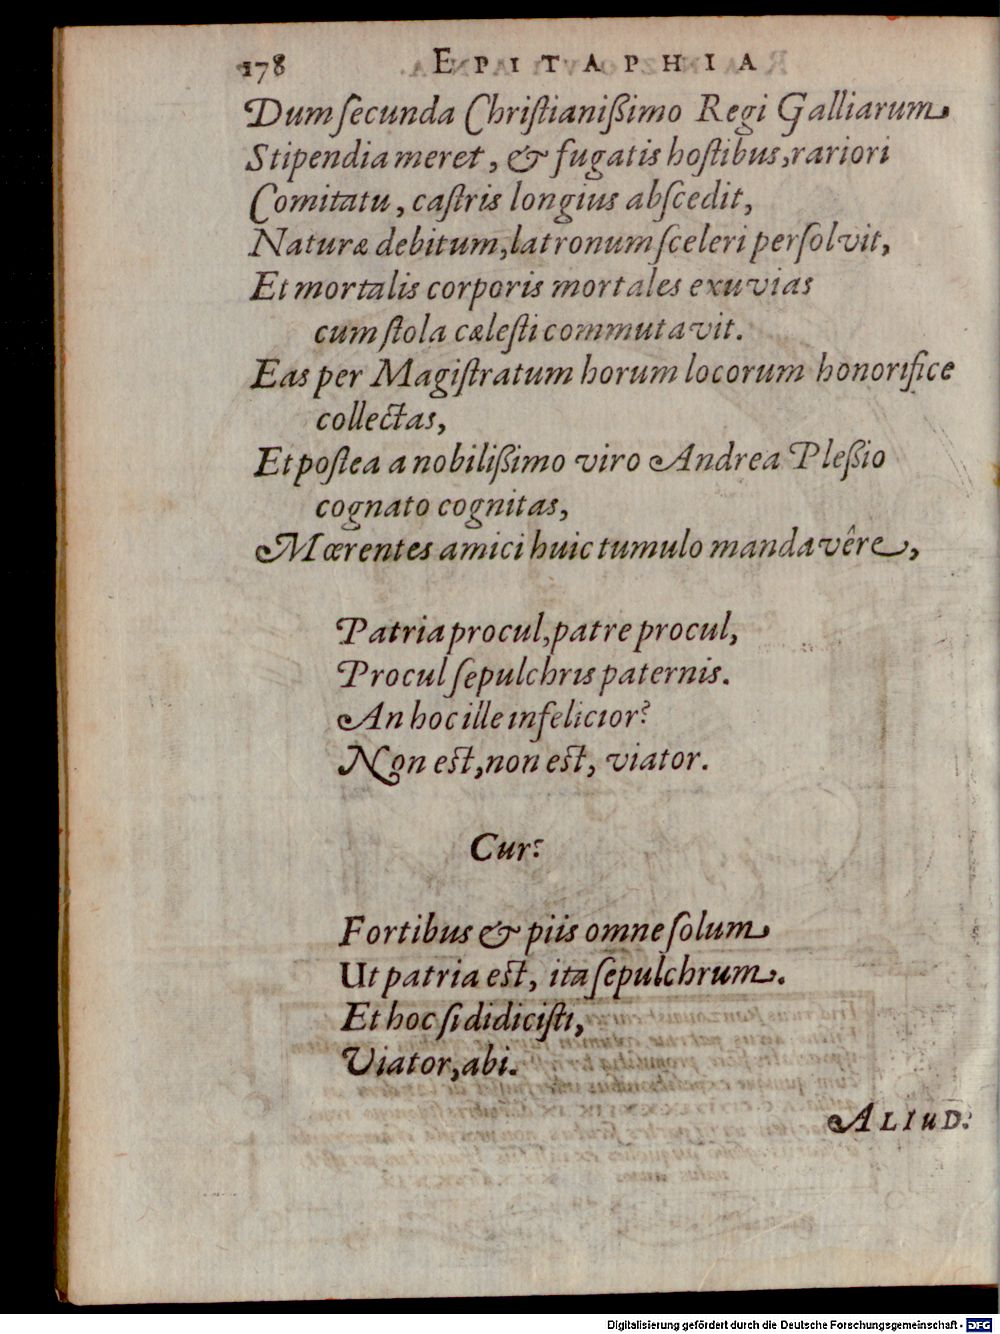 178 EPITAPHIA
Dum ſecunda Chriſtianißimo Regi Galliarum
Stipendia meret, & fugatis hoſtibus, rariori
Comitatu, caſtris longius abſcedit,
Naturæ debitum, latronum ſceleri perſolvit,
Et mortalis corporis mortales exuvias
cum ſtola cæleſti commutavit.
Eas per Magiſtratum horum locorum honorifice
collectas,
Et poſtea a nobilißimo viro Andrea Pleßio
cognato cognitas,
Mœrentes amici huic tumulo mandavêre,
Patria procul, patre procul,
Procul ſepulchris paternis.
An hoc ille infelicior?
Non est, non est, viator.
Cur?
Fortibus & piis omne ſolum
Ut patria est, ita ſepulchrum.
Et hoc ſi didiciſti,
Viator, abi.
ALIUD.
Digitalisierung gefördert durch die Deutsche Forschungsgemeinschaft - DFG